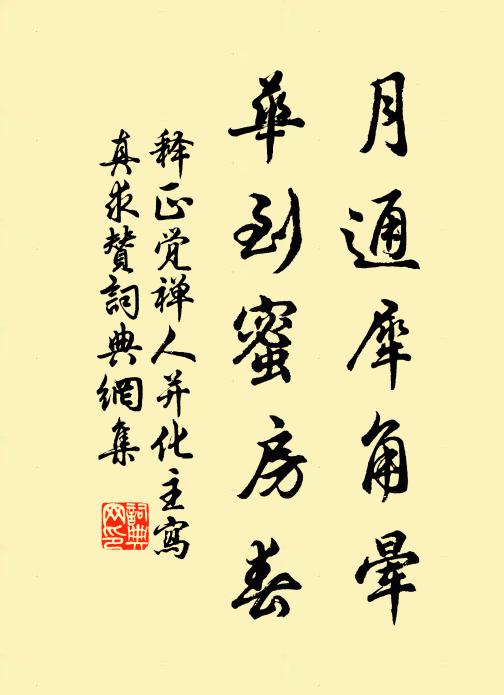 月通犀角暈
華到蜜房春
释正觉禅人并化主寫
真求赞詞典網集
詞典网印